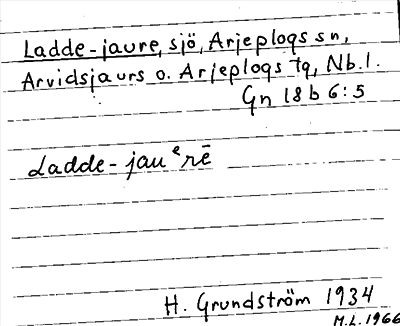 Ladde-jaure, sjö, Arjeplogs sn,
Arvidsjaurs o. Arjeplogs tq, Nb.l.
Gn 18 b 6:5
Ladde-jauᵉrē
H. Grundström 1934
M.L. 1966